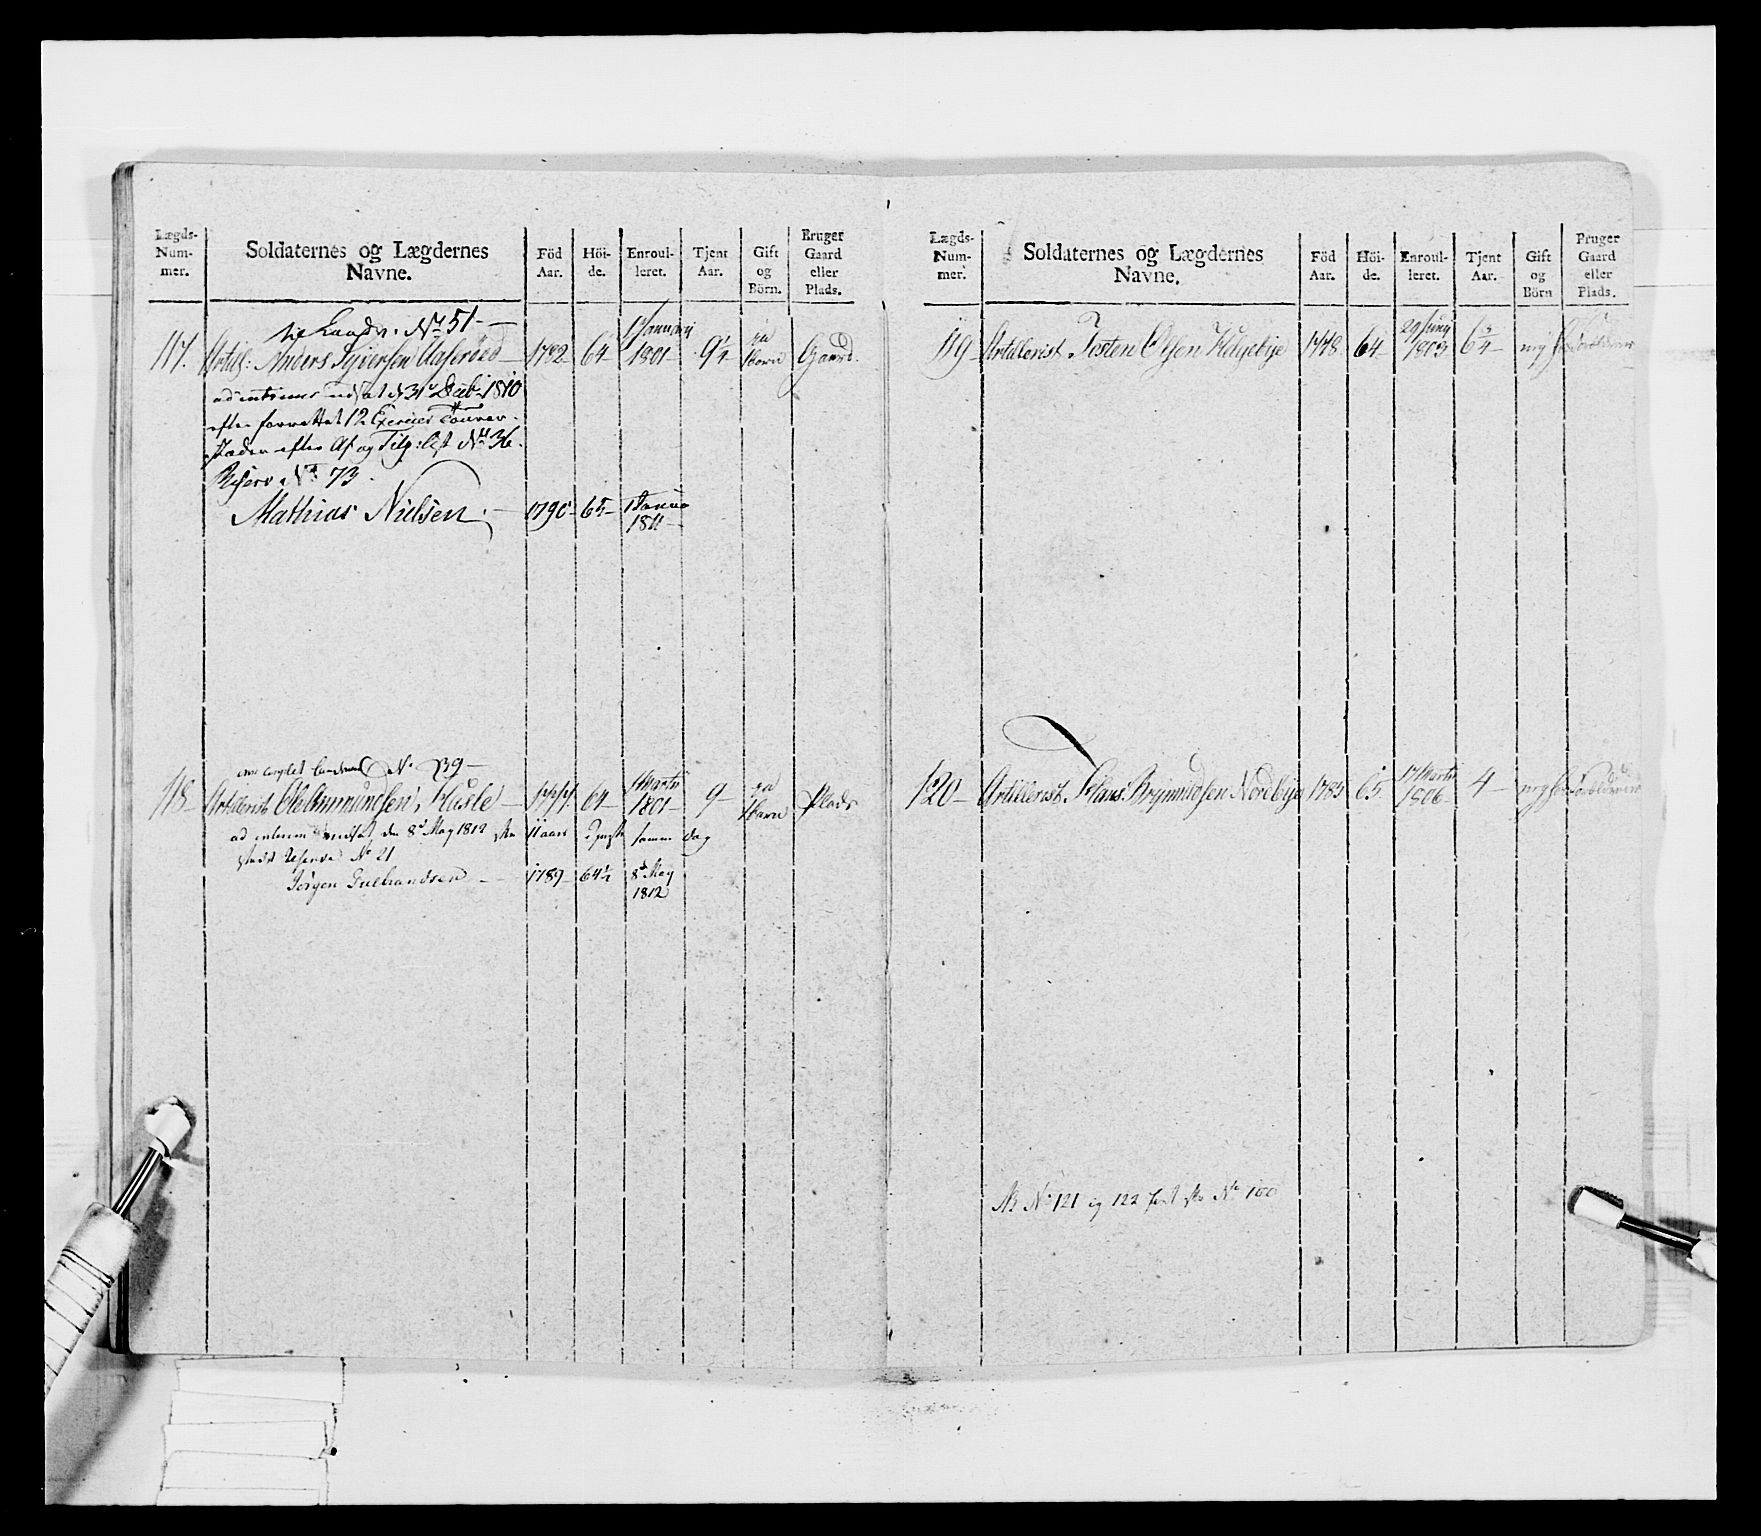 Lægds-
Num-
mer.
Soldaternes og Lægdernes
Navne.
Föd
Aar.
Höi-
de.
Enroul-
leret.
Tjent
Aar.
Gift
og
Börn.
Bruger
Gaard
eller
Plads.
Landv. No 51 -
117. Artil: Anders Syversen 1782 64 1 Januarij 1801 9¼ Gaard
ad interims udsat d 31 Decbr 1810
efter forrettet 12 Exerceer Tourer.
Steden efter Af og Tilg: List No 36.
Reserv No 73.
Mathias Nielsen. - 1790 - 65 - 1 Januar 1811 -
No 39 -
118 - Artillerist Ole Amundsen Hasle - 1777 64 - 1 Martii 1801 - 9 - Plads
ad interim udsat den 8d May 1812 11 aars samme dag
Reserve No 21
Jörgen Gulbrandsen - 1789 - 64½ 8d May 1812
Lægds-
Num-
mer.
Soldaternes og Lægdernes
Navne.
Föd
Aar.
Höi-
de.
Enroul-
leret.
Tjent
Aar.
Gift
og
Börn
Bruger
Gaard
eller
Plads.
119 - Artillerist Josten Olsen Helgebye 1778. 64 1803 6¾ - nej
120 - Artillerist Hans Brynnildsen Nordbye 1785 65 17 Martii 1806 - 4 - nej
No 121 og 122 No 100